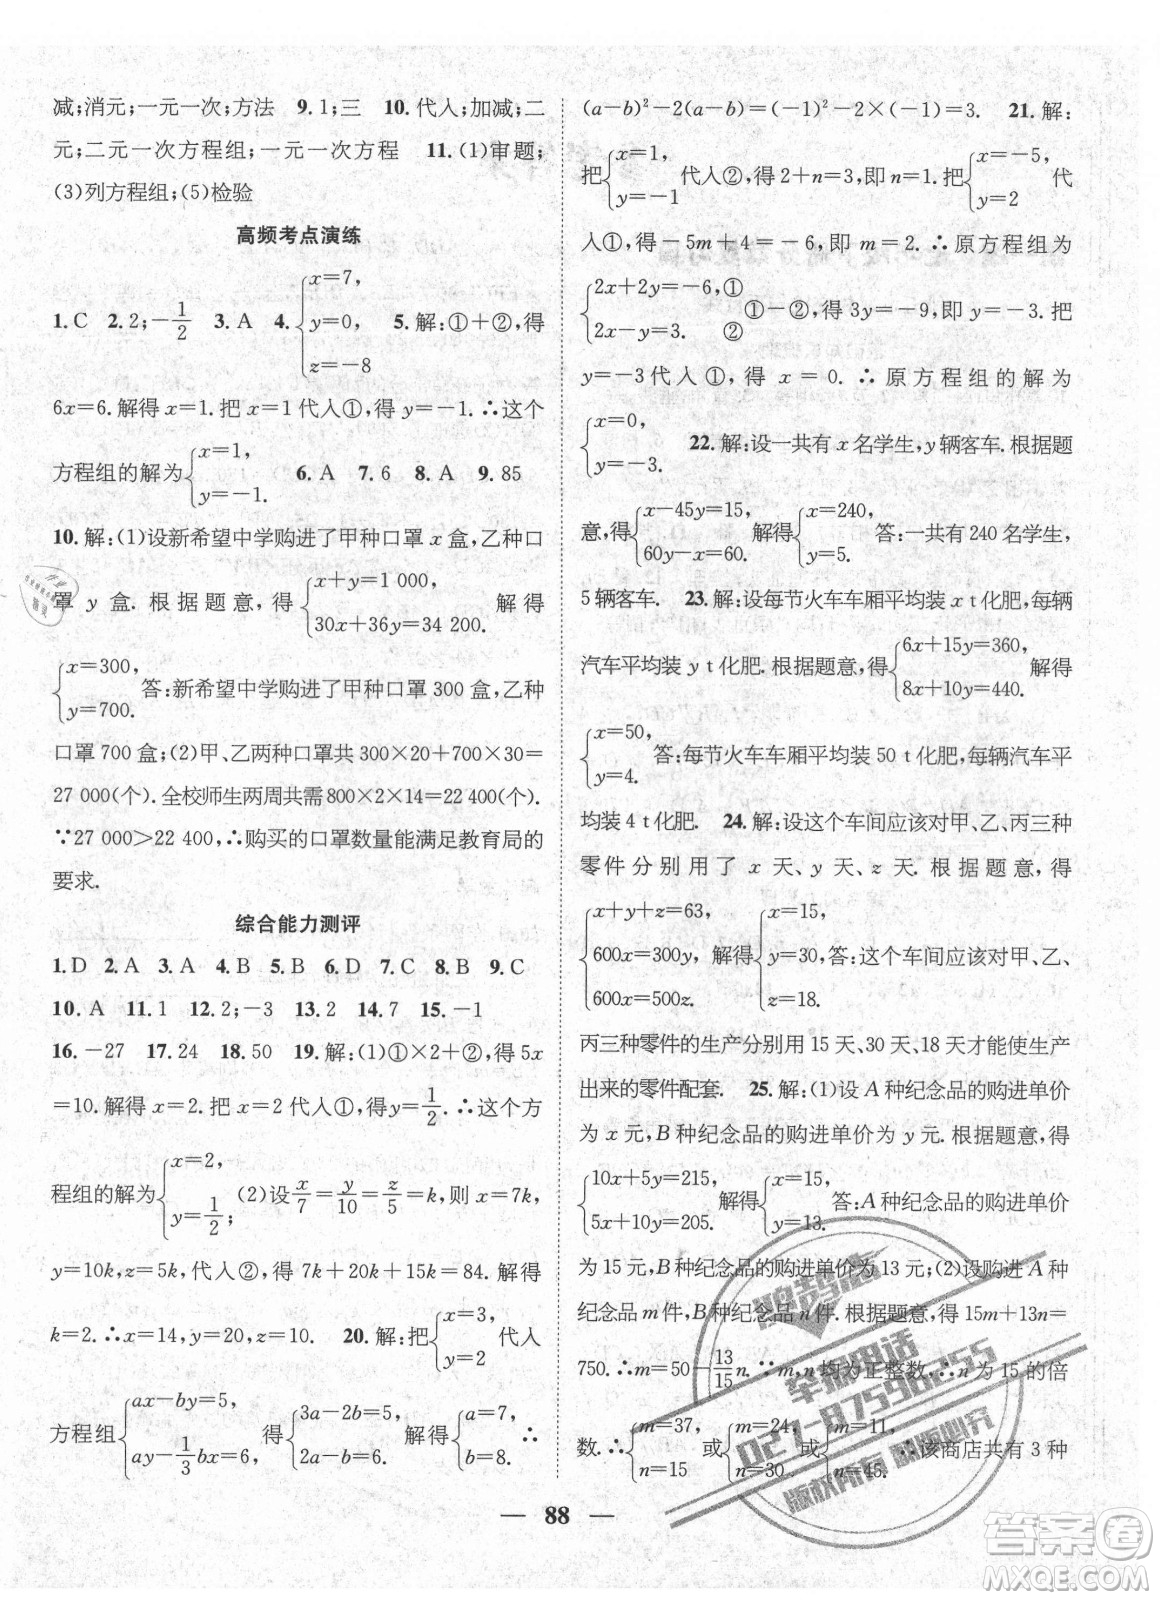 减;消元;一元一次;方法　9.1;三　10.代入;加减;二
元;二元一次方程组;一元一次方程　11.(1)审题;
(3)列方程组;(5)检验
高频考点演练
1.C　2.2;-1/2　3.A　4.{x=7, y=0, z=-8　5.解:①+②,得
6x=6.解得 x=1.把 x=1 代入①,得 y=-1.∴这个
方程组的解为{x=1, y=-1.　6.A　7.6　8.A　9.85
10.解:(1)设新希望中学购进了甲种口罩 x 盒,乙种口
罩 y 盒.根据题意,得{x+y=1 000, 30x+36y=34 200.解得
{x=300, y=700.答:新希望中学购进了甲种口罩 300 盒,乙种
口罩 700 盒;(2)甲、乙两种口罩共 300×20+700×30=
27 000(个).全校师生两周共需 800×2×14=22 400(个).
∵27 000>22 400,∴购买的口罩数量能满足教育局的
要求.
综合能力测评
1.D　2.A　3.A　4.B　5.B　6.D　7.C　8.B　9.C
10.A　11.1　12.2;-3　13.2　14.7　15.-1
16.-27　17.24　18.50　19.解:(1)①×2+②,得 5x
=10.解得 x=2.把 x=2 代入①,得 y=1/2.∴这个方
程组的解为{x=2, y=1/2;(2)设 x/7=y/10=z/5=k,则 x=7k,
y=10k,z=5k,代入②,得 7k+20k+15k=84.解得
k=2.∴x=14,y=20,z=10.　20.解:把{x=3, y=2 代入
方程组{ax-by=5, ay-1/3bx=6,得{3a-2b=5, 2a-b=6.解得{a=7, b=8.∴
(a-b)²-2(a-b)=(-1)²-2×(-1)=3.　21.解:
把{x=1, y=-1代入②,得 2+n=3,即 n=1.把{x=-5, y=2 代
入①,得-5m+4=-6,即 m=2.∴原方程组为
{2x+2y=-6,① 2x-y=3. ②　①-②,得 3y=-9,即 y=-3.把
y=-3代入①,得 x=0.∴原方程组的解为
{x=0, y=-3.　22.解:设一共有 x 名学生,y 辆客车.根据题
意,得{x-45y=15, 60y-x=60.解得{x=240, y=5.答:一共有 240 名学生,
5 辆客车.　23.解:设每节火车车厢平均装 x t 化肥,每辆
汽车平均装 y t 化肥.根据题意,得{6x+15y=360, 8x+10y=440.解得
{x=50, y=4.答:每节火车车厢平均装 50 t 化肥,每辆汽车平
均装 4 t 化肥.　24.解:设这个车间应该对甲、乙、丙三种
零件分别用了 x 天、y 天、z 天.根据题意,得
{x+y+z=63, 600x=300y, 600x=500z.解得{x=15, y=30, z=18.答:这个车间应该对甲、乙、
丙三种零件的生产分别用 15 天、30 天、18 天才能使生产
出来的零件配套.　25.解:(1)设 A 种纪念品的购进单价
为 x 元,B 种纪念品的购进单价为 y 元.根据题意,得
{10x+5y=215, 5x+10y=205.解得{x=15, y=13.答:A 种纪念品的购进单价
为 15 元,B 种纪念品的购进单价为 13 元;(2)设购进 A 种
纪念品 m 件,B 种纪念品 n 件.根据题意,得 15m+13n=
750.∴m=50-13/15n.∵m,n 均为正整数,∴n 为 15 的倍
数.∴{m=37, n=15 或{m=24, n=30 或{m=11, n=45.∴该商店共有 3 种
— 88 —
举报电话
027-87596255
版权所有 翻版必究
答案圈
MXQE.COM